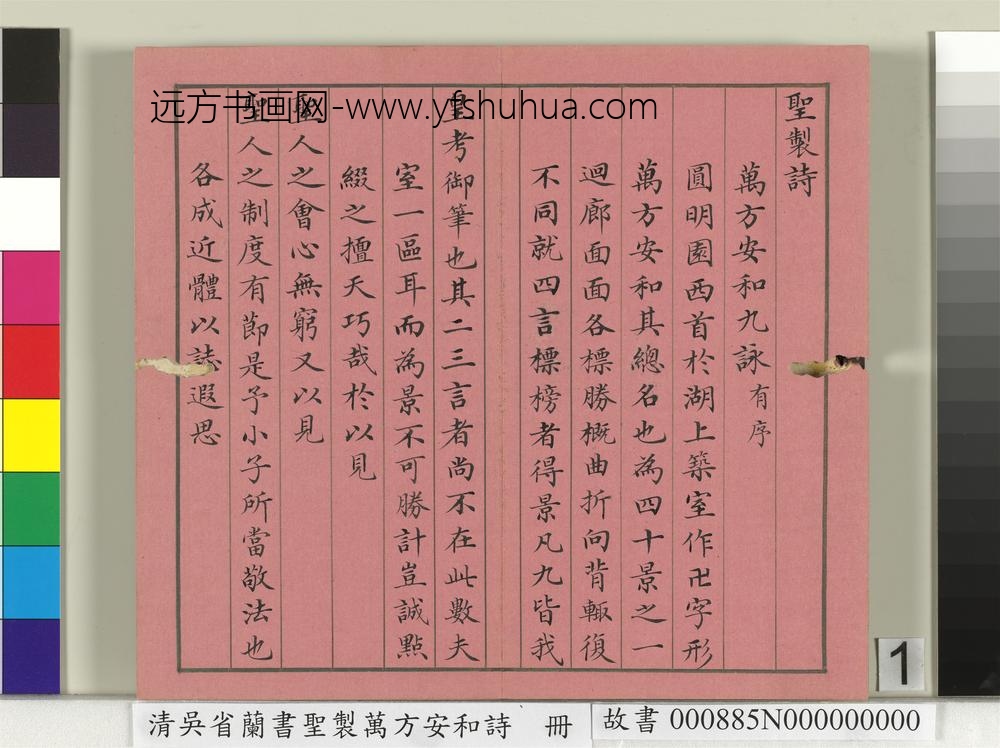 聖製詩
萬方安和九詠有序
圓明園西首於湖上築室作卍字形
萬方安和其總名也為四十景之一
迴廊面面各標勝概曲折向背輙復
不同就四言標榜者得景凡九皆我
皇考御筆也其二三言者尚不在此數夫
室一區耳而為景不可勝計豈誠點
綴之擅天巧哉於以見
聖人之會心無窮又以見
聖人之制度有節是予小子所當敬法也
各成近體以誌遐思
远方书画网-www.yfshuhua.com
1
清吳省蘭書聖製萬方安和詩 冊
故書 000885N000000000